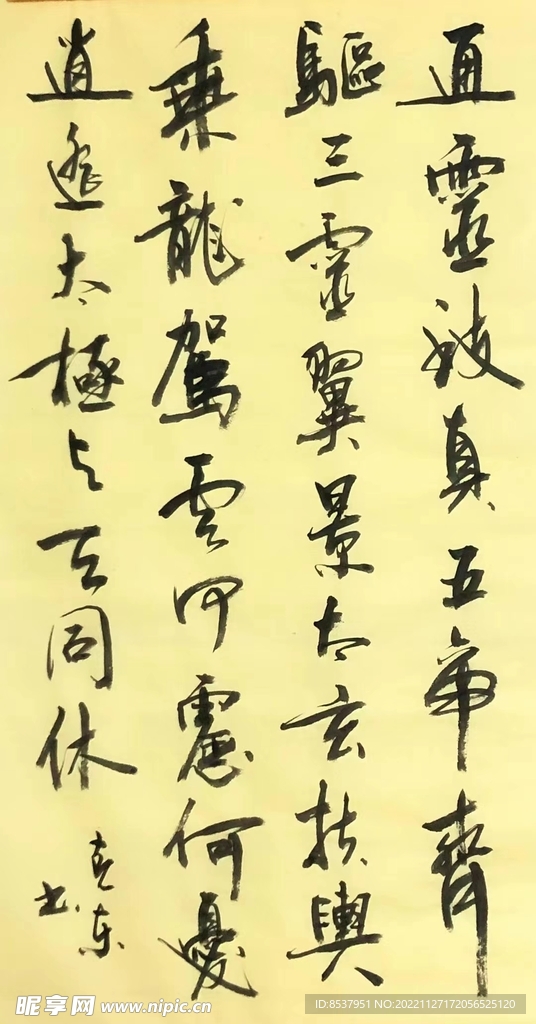 通靈被真五帝齊
驅三靈翼景太玄扶輿
乘龍駕雲何慮何憂
逍遙太極与天同休
书
昵享网 www.nipic.cn
ID:8537951 NO:20221127172056525120